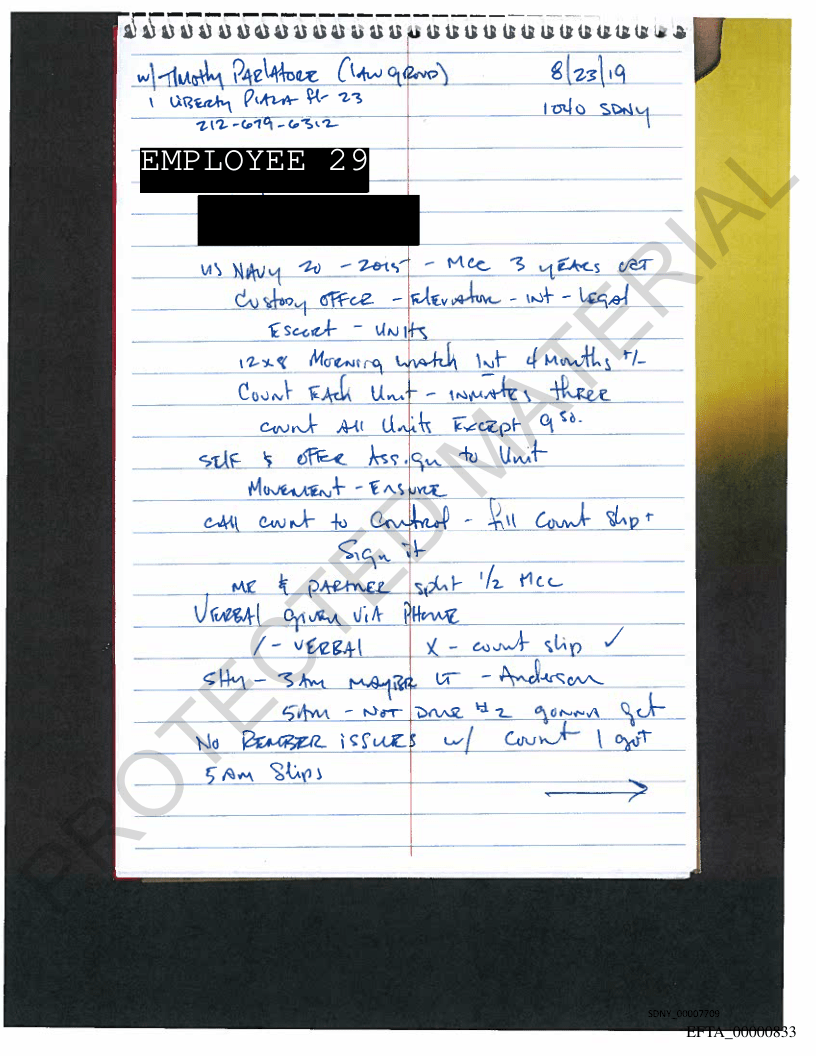 w/ Timothy PARlAtoRE (lAw gRoup) 8/23/19
1 LiBERty PlAzA fl- 23 1040 SDNY
212-679-6312
EMPLOYEE 29
US NAVY 20 - 2015 - MCC 3 yEARs
Custody OFFCR - ElEvAtor - INT - lEgAl
EscoRt - UNITS
12x8 MoRNiNg watch INT 4 Months +/-
COUNT EAch Unit - INMATES thREE
count All Units ExcEpt 9 so.
SElf & OFFCR Ass.gn to Unit
MovEMENT - ENSURE
CAll count to Control - fill Count Slip +
Sign it
ME & PARTNER split 1/2 MCC
VERBAl givEN ViA PHONE
/ - VERBAl X - count slip ✓
SHU - 3 AM MAyBE LT - Anderson
5AM - NOT DONE #2 gonna get
No REMBER iSSUES w/ Count I got
5 AM Slips
PROTECTED MATERIAL
SDNY_00007709
EFTA_00000833